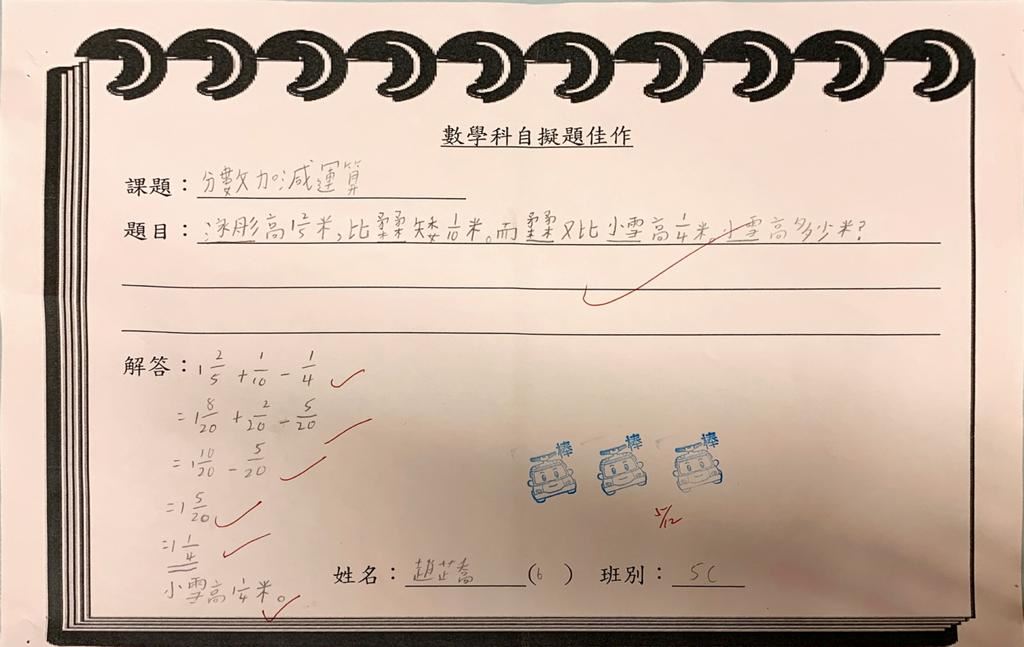 數學科自擬題佳作
課題：分數加減運算
題目：涂彤高1 2/5米,比柔柔矮1/10米。而柔柔又比小雪高1/4米,小雪高多少米?
解答：1 2/5 + 1/10 - 1/4
=1 8/20 + 2/20 - 5/20
=1 10/20 - 5/20
=1 5/20
=1 1/4
小雪高1 1/4米。
棒 棒 棒
5/12
姓名：趙芷喬(6) 班別：5C